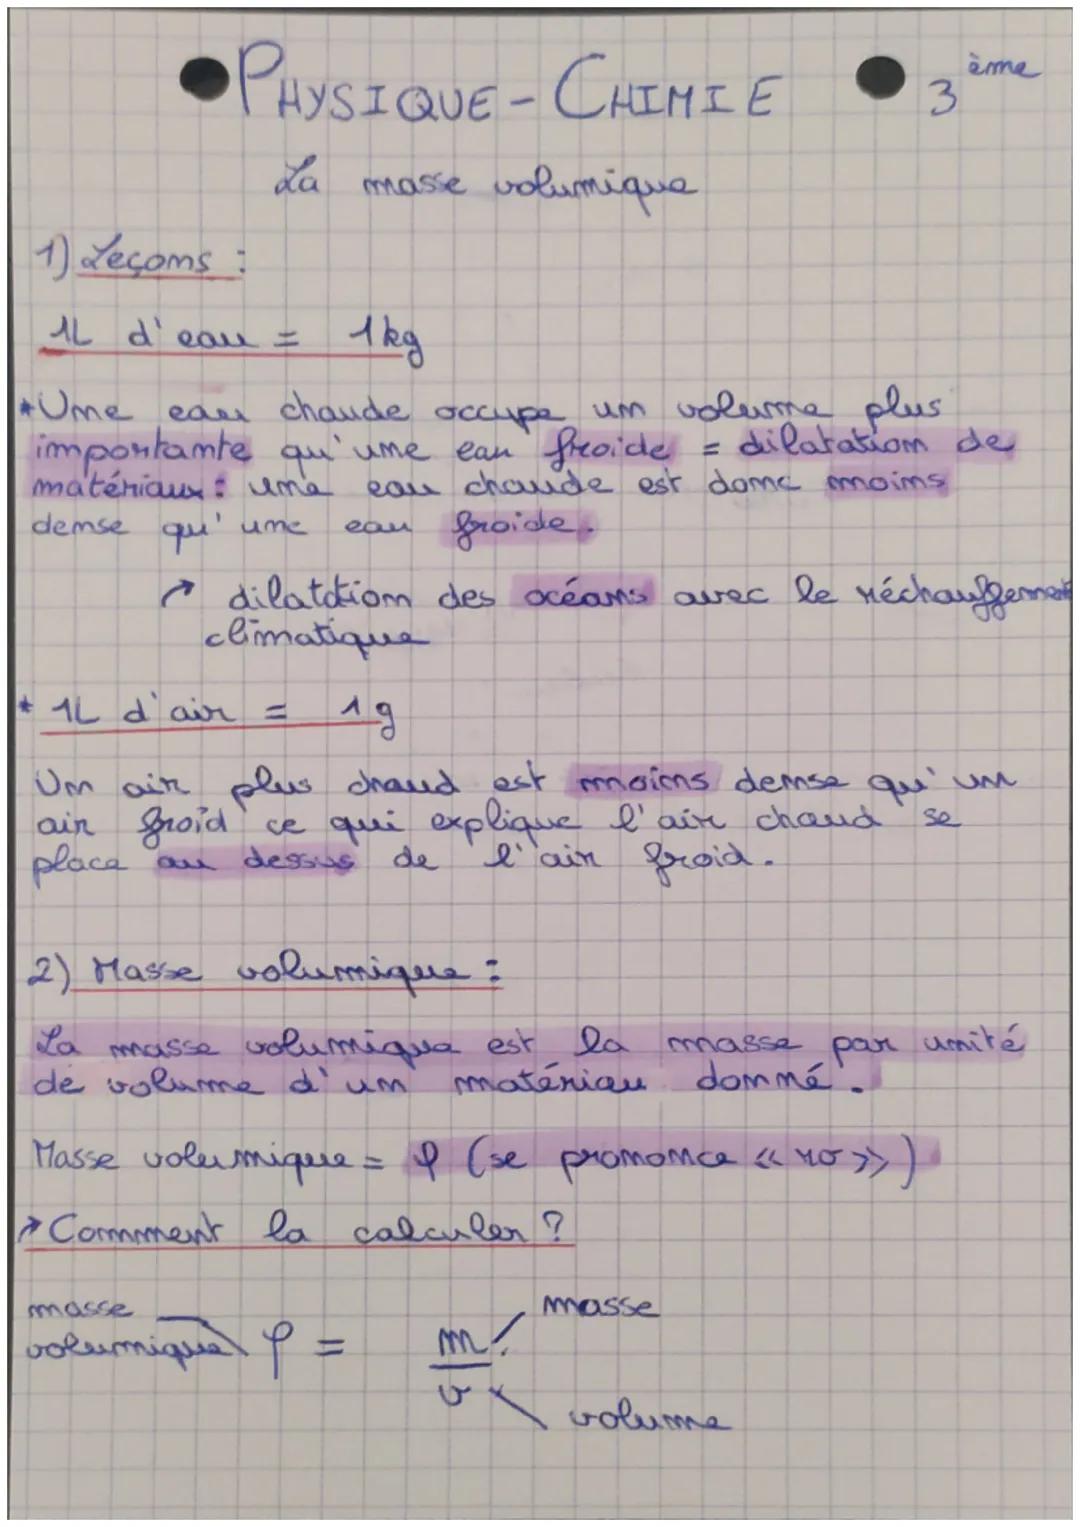 PHYSIQUE - CHIMIE 3ème
La masse volumique
1) Leçons :
1L d'eau = 1kg
*Une eau chaude occupe un volume plus
importante qu'une eau froide = dilatation de
matériaux : une eau chaude est donc moins
dense qu'une eau froide.
↗ dilatation des océans avec le réchauffement
climatique
* 1L d'air = 1g
Un air plus chaud est moins dense qu'un
air froid ce qui explique l'air chaud se
place au dessus de l'air froid.
2) Masse volumique :
La masse volumique est la masse par unité
de volume d'un matériau donné.
Masse volumique = ρ (se prononce « ro »)
↗ Comment la calculer ?
masse
volumique ρ = m/v
masse
volume